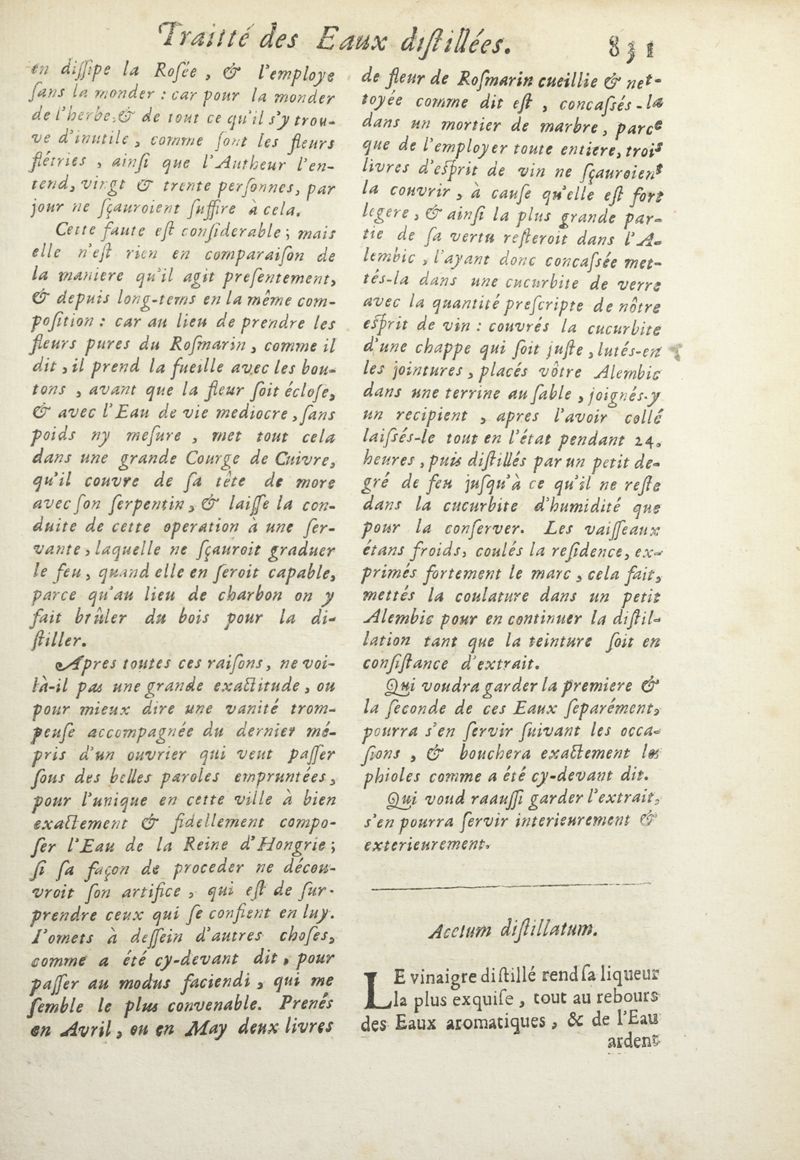 Traitté des Eaux distillées. 831
en dissipe la Rosée , & l'employe
sans la monder : car pour la monder
de l'herbe,& de tout ce qu'il s'y trou-
ve d'inutile , comme sont les fleurs
flétries , ainsi que l'Autheur l'en-
tend, vingt & trente personnes, par
jour ne sçauroient suffire à cela.
Cette faute est considerable ; mais
elle n'est rien en comparaison de
la maniere qu'il agit presentement,
& depuis long-tems en la même com-
position : car au lieu de prendre les
fleurs pures du Rosmarin , comme il
dit , il prend la fueille avec les bou-
tons , avant que la fleur soit éclose,
& avec l'Eau de vie mediocre , sans
poids ny mesure , met tout cela
dans une grande Courge de Cuivre,
qu'il couvre de sa tête de more
avec son serpentin , & laisse la con-
duite de cette operation à une ser-
vante , laquelle ne sçauroit graduer
le feu , quand elle en seroit capable,
parce qu'au lieu de charbon on y
fait brûler du bois pour la di-
stiller.
Apres toutes ces raisons, ne voi-
là-il pas une grande exactitude , ou
pour mieux dire une vanité trom-
peuse accompagnée du dernier mé-
pris d'un ouvrier qui veut passer
sous des belles paroles empruntées,
pour l'unique en cette ville à bien
exactement & fidellement compo-
ser l'Eau de la Reine d'Hongrie ;
si sa façon de proceder ne décou-
vroit son artifice , qui est de sur-
prendre ceux qui se confient en luy.
I'omets à dessein d'autres choses,
comme a été cy-devant dit , pour
passer au modus faciendi , qui me
semble le plus convenable. Prenés
en Avril , ou en May deux livres
de fleur de Rosmarin cueillie & net-
toyée comme dit est , concassés-la
dans un mortier de marbre , parce
que de l'employer toute entiere, trois
livres d'esprit de vin ne sçauroient
la couvrir , à cause qu'elle est fort
legere , & ainsi la plus grande par-
tie de sa vertu resteroit dans l'A-
lembic , l'ayant donc concassée met-
tés-la dans une cucurbite de verre
avec la quantité prescripte de nôtre
esprit de vin : couvrés la cucurbite
d'une chappe qui soit juste , lutés-en
les jointures , placés vôtre Alembic
dans une terrine au sable , joignés-y
un recipient , apres l'avoir collé
laissés-le tout en l'état pendant 24.
heures , puis distillés par un petit de-
gré de feu jusqu'à ce qu'il ne reste
dans la cucurbite d'humidité que
pour la conserver. Les vaisseaux
étans froids, coulés la residence, ex-
primés fortement le marc , cela fait,
mettés la coulature dans un petit
Alembic pour en continuer la distil-
lation tant que la teinture soit en
consistance d'extrait.
Qui voudra garder la premiere &
la seconde de ces Eaux separément,
pourra s'en servir suivant les occa-
sions , & bouchera exactement les
phioles comme a été cy-devant dit.
Qui voud raaussi garder l'extrait,
s'en pourra servir interieurement &
exterieurement.
Acetum distillatum.
LE vinaigre distillé rend sa liqueur
la plus exquise , tout au rebours
des Eaux aromatiques , & de l'Eau
ardent-